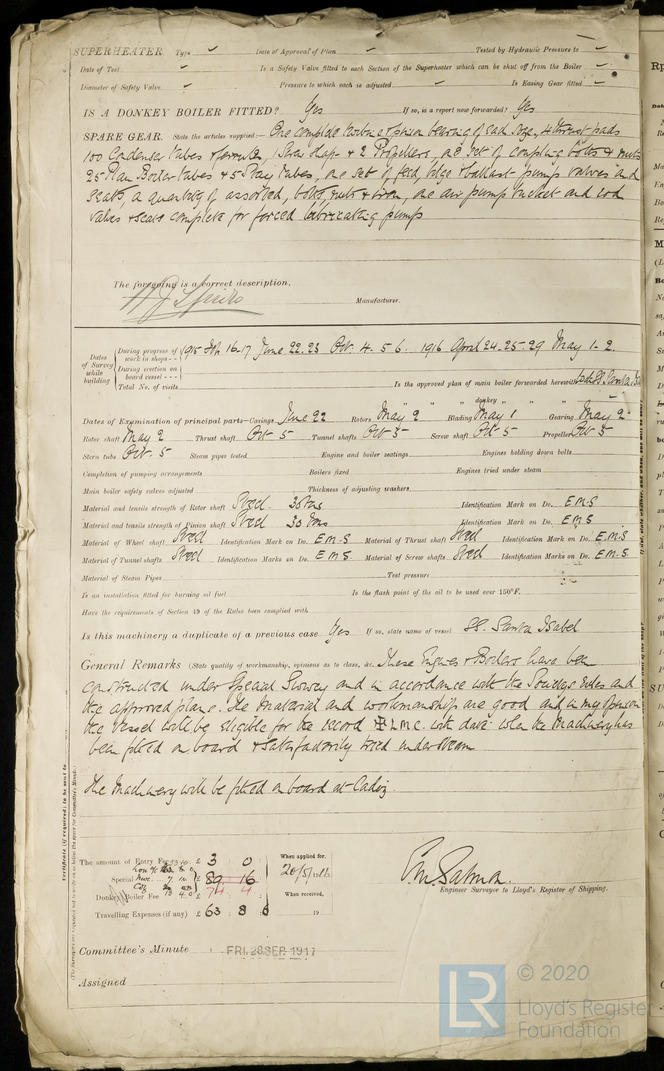 SUPERHEATER. Type ✓ Date of Approval of Plan ✓ Tested by Hydraulic Pressure to ✓
Date of Test ✓ Is a Safety Valve fitted to each Section of the Superheater which can be shut off from the Boiler ✓
Diameter of Safety Valve ✓ Pressure to which each is adjusted ✓ Is Easing Gear fitted ✓
IS A DONKEY BOILER FITTED? Yes If so, is a report now forwarded? Yes
SPARE GEAR. State the articles supplied:— One complete turbine & pinion bearing of each size, 4 thrust pads
100 Condenser tubes & ferrules, 1 Screw shaft & 2 Propellers, one set of coupling bolts & nuts
25 Plain Boiler tubes & 5 Stay tubes, one set of feed, bilge & ballast pumps valves and
seats, a quantity of assorted, bolts, nuts & iron, one air pump bucket and rod
valves & seats complete for forced lubricating pumps
The foregoing is a correct description,
Manufacturer.
Dates of Survey while building
During progress of work in shops -- 1915 16-17 June 22.23 Oct. 4. 5 6. 1916 April 24-25-29 May 1-2
During erection on board vessel ---
Total No. of visits
Is the approved plan of main boiler forwarded herewith
" " " donkey " " "
Dates of Examination of principal parts—Casings June 22 Rotors May 2 Blading May 1 Gearing May 2
Rotor shaft May 2 Thrust shaft Oct 5 Tunnel shafts Oct 5 Screw shaft Oct 5 Propeller Oct 5
Stern tube Oct. 5 Steam pipes tested Engine and boiler seatings Engines holding down bolts
Completion of pumping arrangements Boilers fixed Engines tried under steam
Main boiler safety valves adjusted Thickness of adjusting washers
Material and tensile strength of Rotor shaft Steel 30 tons Identification Mark on Do. E.M.S
Material and tensile strength of Pinion shaft Steel 30 tons Identification Mark on Do. E M S
Material of Wheel shaft Steel Identification Mark on Do. E M-S Material of Thrust shaft Steel Identification Mark on Do. E.M.S
Material of Tunnel shafts Steel Identification Marks on Do. E M S Material of Screw shafts Steel Identification Marks on Do. E M. S
Material of Steam Pipes Test pressure
Is an installation fitted for burning oil fuel Is the flash point of the oil to be used over 150°F.
Have the requirements of Section 49 of the Rules been complied with
Is this machinery a duplicate of a previous case Yes If so, state name of vessel SS. Santa Isabel
General Remarks (State quality of workmanship, opinions as to class, &c. These Engines & Boilers have been
constructed under Special Survey and in accordance with the Society's rules and
the approved plans. The material and workmanship are good and in my opinion
the vessel will be eligible for the record ✠ L.M.C. with date when the Machinery has
been fitted on board & satisfactorily tried under steam
The Machinery will be fitted on board at Cadiz.
Certificate (if required) to be sent to
The amount of Entry Fee £ 3 0 When applied for,
Special £ 89 16 20/5/1916
74 4
Donkey Boiler Fee £ When received,
Travelling Expenses (if any) £ 63 8 6 19
E.M. Salmon
Engineer Surveyor to Lloyd's Register of Shipping.
Committee's Minute FRI. 28 SEP. 1917
Assigned
LR © 2020
Lloyd's Register
Foundation